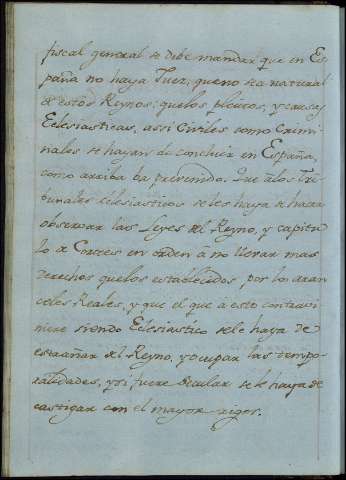 fiscal general se debe mandar que en Es
paña no haya Juez, que no sea natural
de estos Reynos; quelos pleitos, y causas
Eclesiasticas, assi Civiles como Crimi
nales se hayan de concluir en España,
como arriba ba prevenido. Que alos Tri
bunales eclesiasticos seles haya de hacer
observar las Leyes del Reyno, y capitu
lo de Cortes en orden à no llevar mas
derechos quelos establecidos por los aran
celes Reales, y que el que à esto contravi
niere siendo Eclesiastico sele haya de
estrañar del Reyno, y ocupar las tempo
ralidades, y si fuere Secular se le haya de
castigar con el mayor rigor.